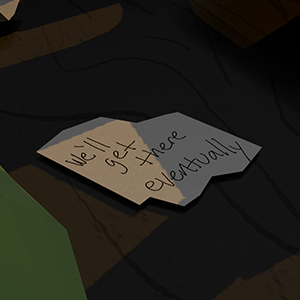 we'll
get
there
eventually